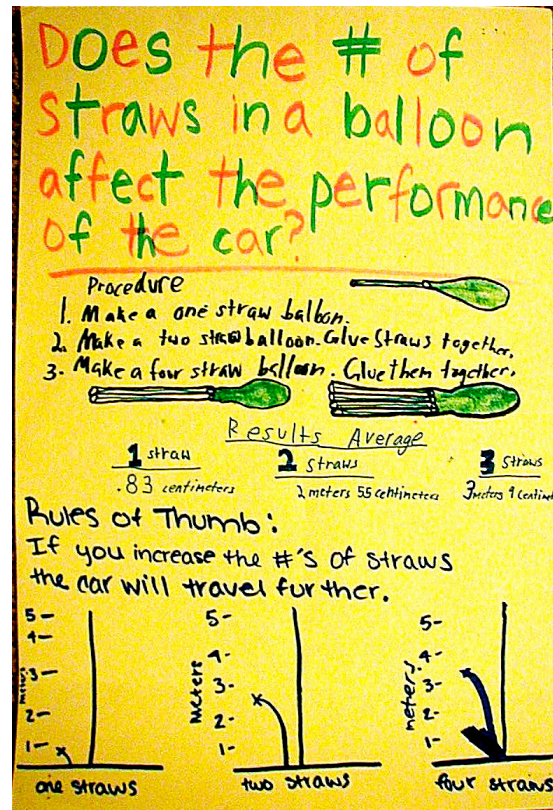 Does the # of
straws in a balloon
affect the performance
of the car?
Procedure
1. Make a one straw balloon.
2. Make a two straw balloon. Glue straws together.
3- Make a four straw balloon. Glue them together.
Results Average
1 straw 2 straws 3 straws
.83 centimeters 2 meters 55 centimeters 3 meters 9 centimet
Rules of Thumb:
If you increase the #'s of straws
the car will travel further.
5-
4-
3-
2-
1-
meters
one straws
5-
4-
3-
2-
1-
meters
two straws
5-
4-
3-
2-
1-
meters
four straws